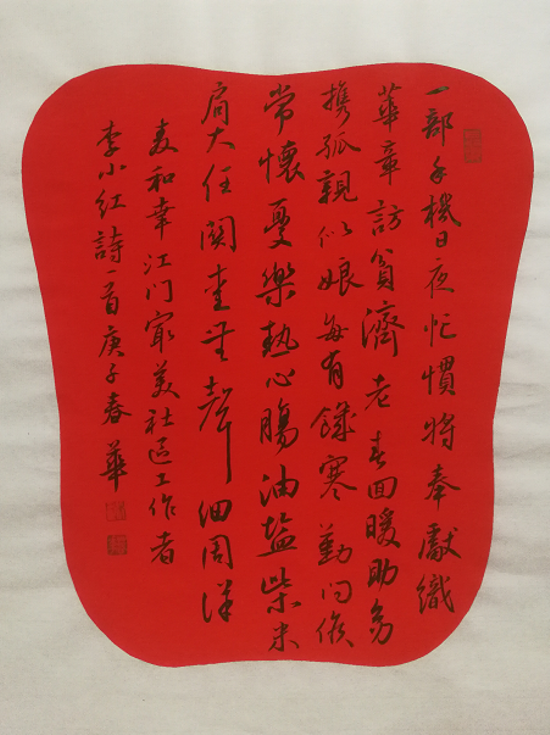 一部手機日夜忙慣將奉獻織
華章訪貧濟老春回暖助
携孤親似娘每有饑寒勤问候
常懷憂樂熱心腸油塩柴米
肩大任關愛無聲細周详
麦和幸江门最美社區工作者
李小红詩一首庚子春華